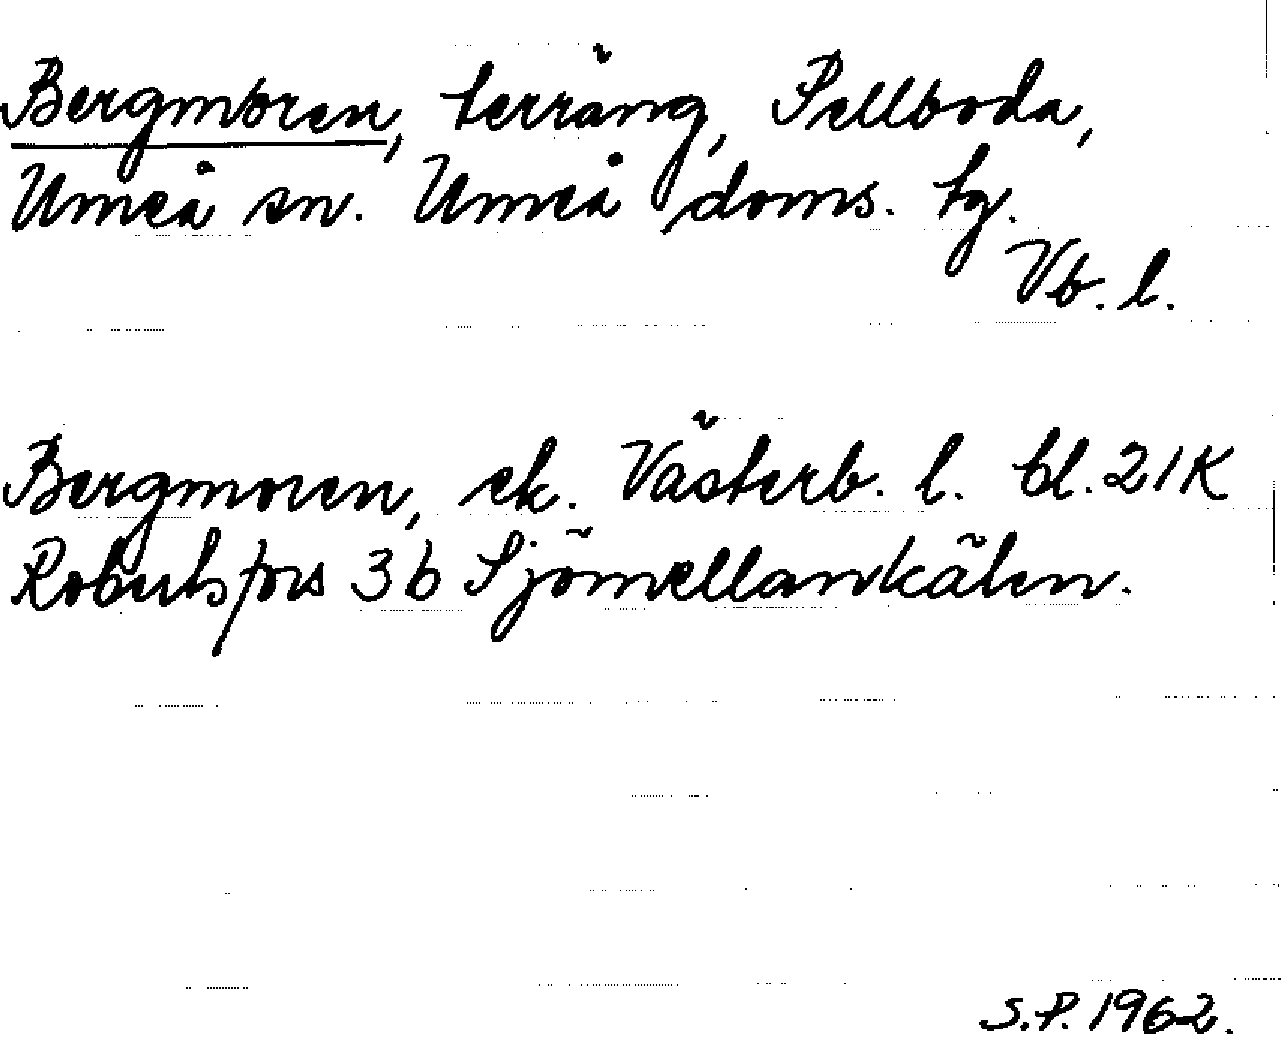 Bergmoren, terräng, Pellboda,
Umeå sn. Umeå doms. tg.
Vb. l.
Bergmoren, ek. Västerb. l. bl. 21K
Robertsfors 3b Sjömellankälen.
S.P. 1962.